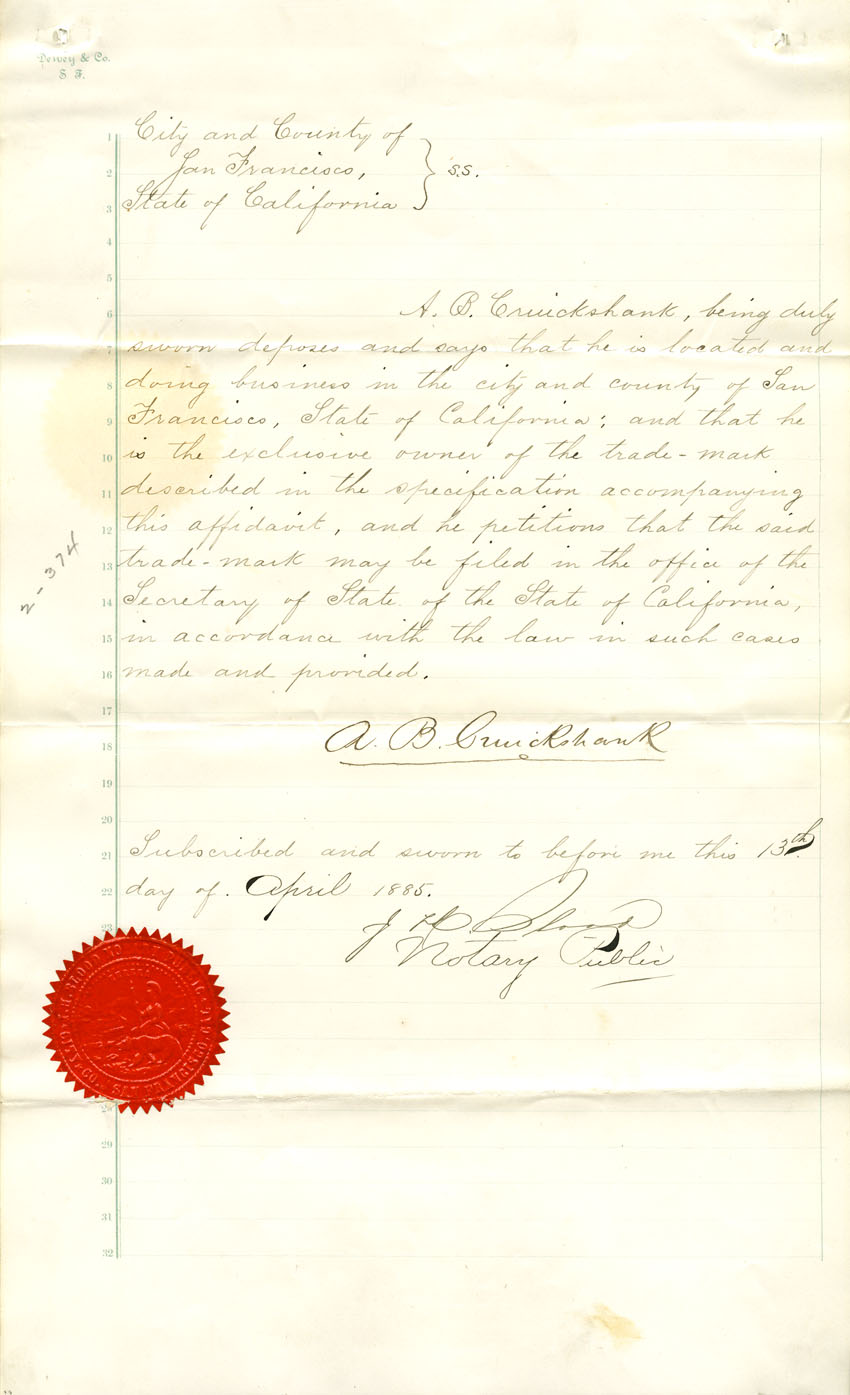 Dewey & Co.
S. F.
1 City and County of
2 San Francisco, } s.s.
3 State of California
4
5
6 A. B. Cruickshank, being duly
7 sworn deposes and says that he is located and
8 doing business in the city and county of San
9 Francisco, State of California; and that he
10 is the exclusive owner of the trade-mark
11 described in the specification accompanying
12 this affidavit, and he petitions that the said
13 trade-mark may be filed in the office of the
14 Secretary of State of the State of California,
15 in accordance with the law in such cases
16 made and provided.
17
18 A. B. Cruickshank
19
20
21 Subscribed and sworn to before me this 13th
22 day of April 1885.
23 J. H. Blood
Notary Public
29
30
31
32
2-374